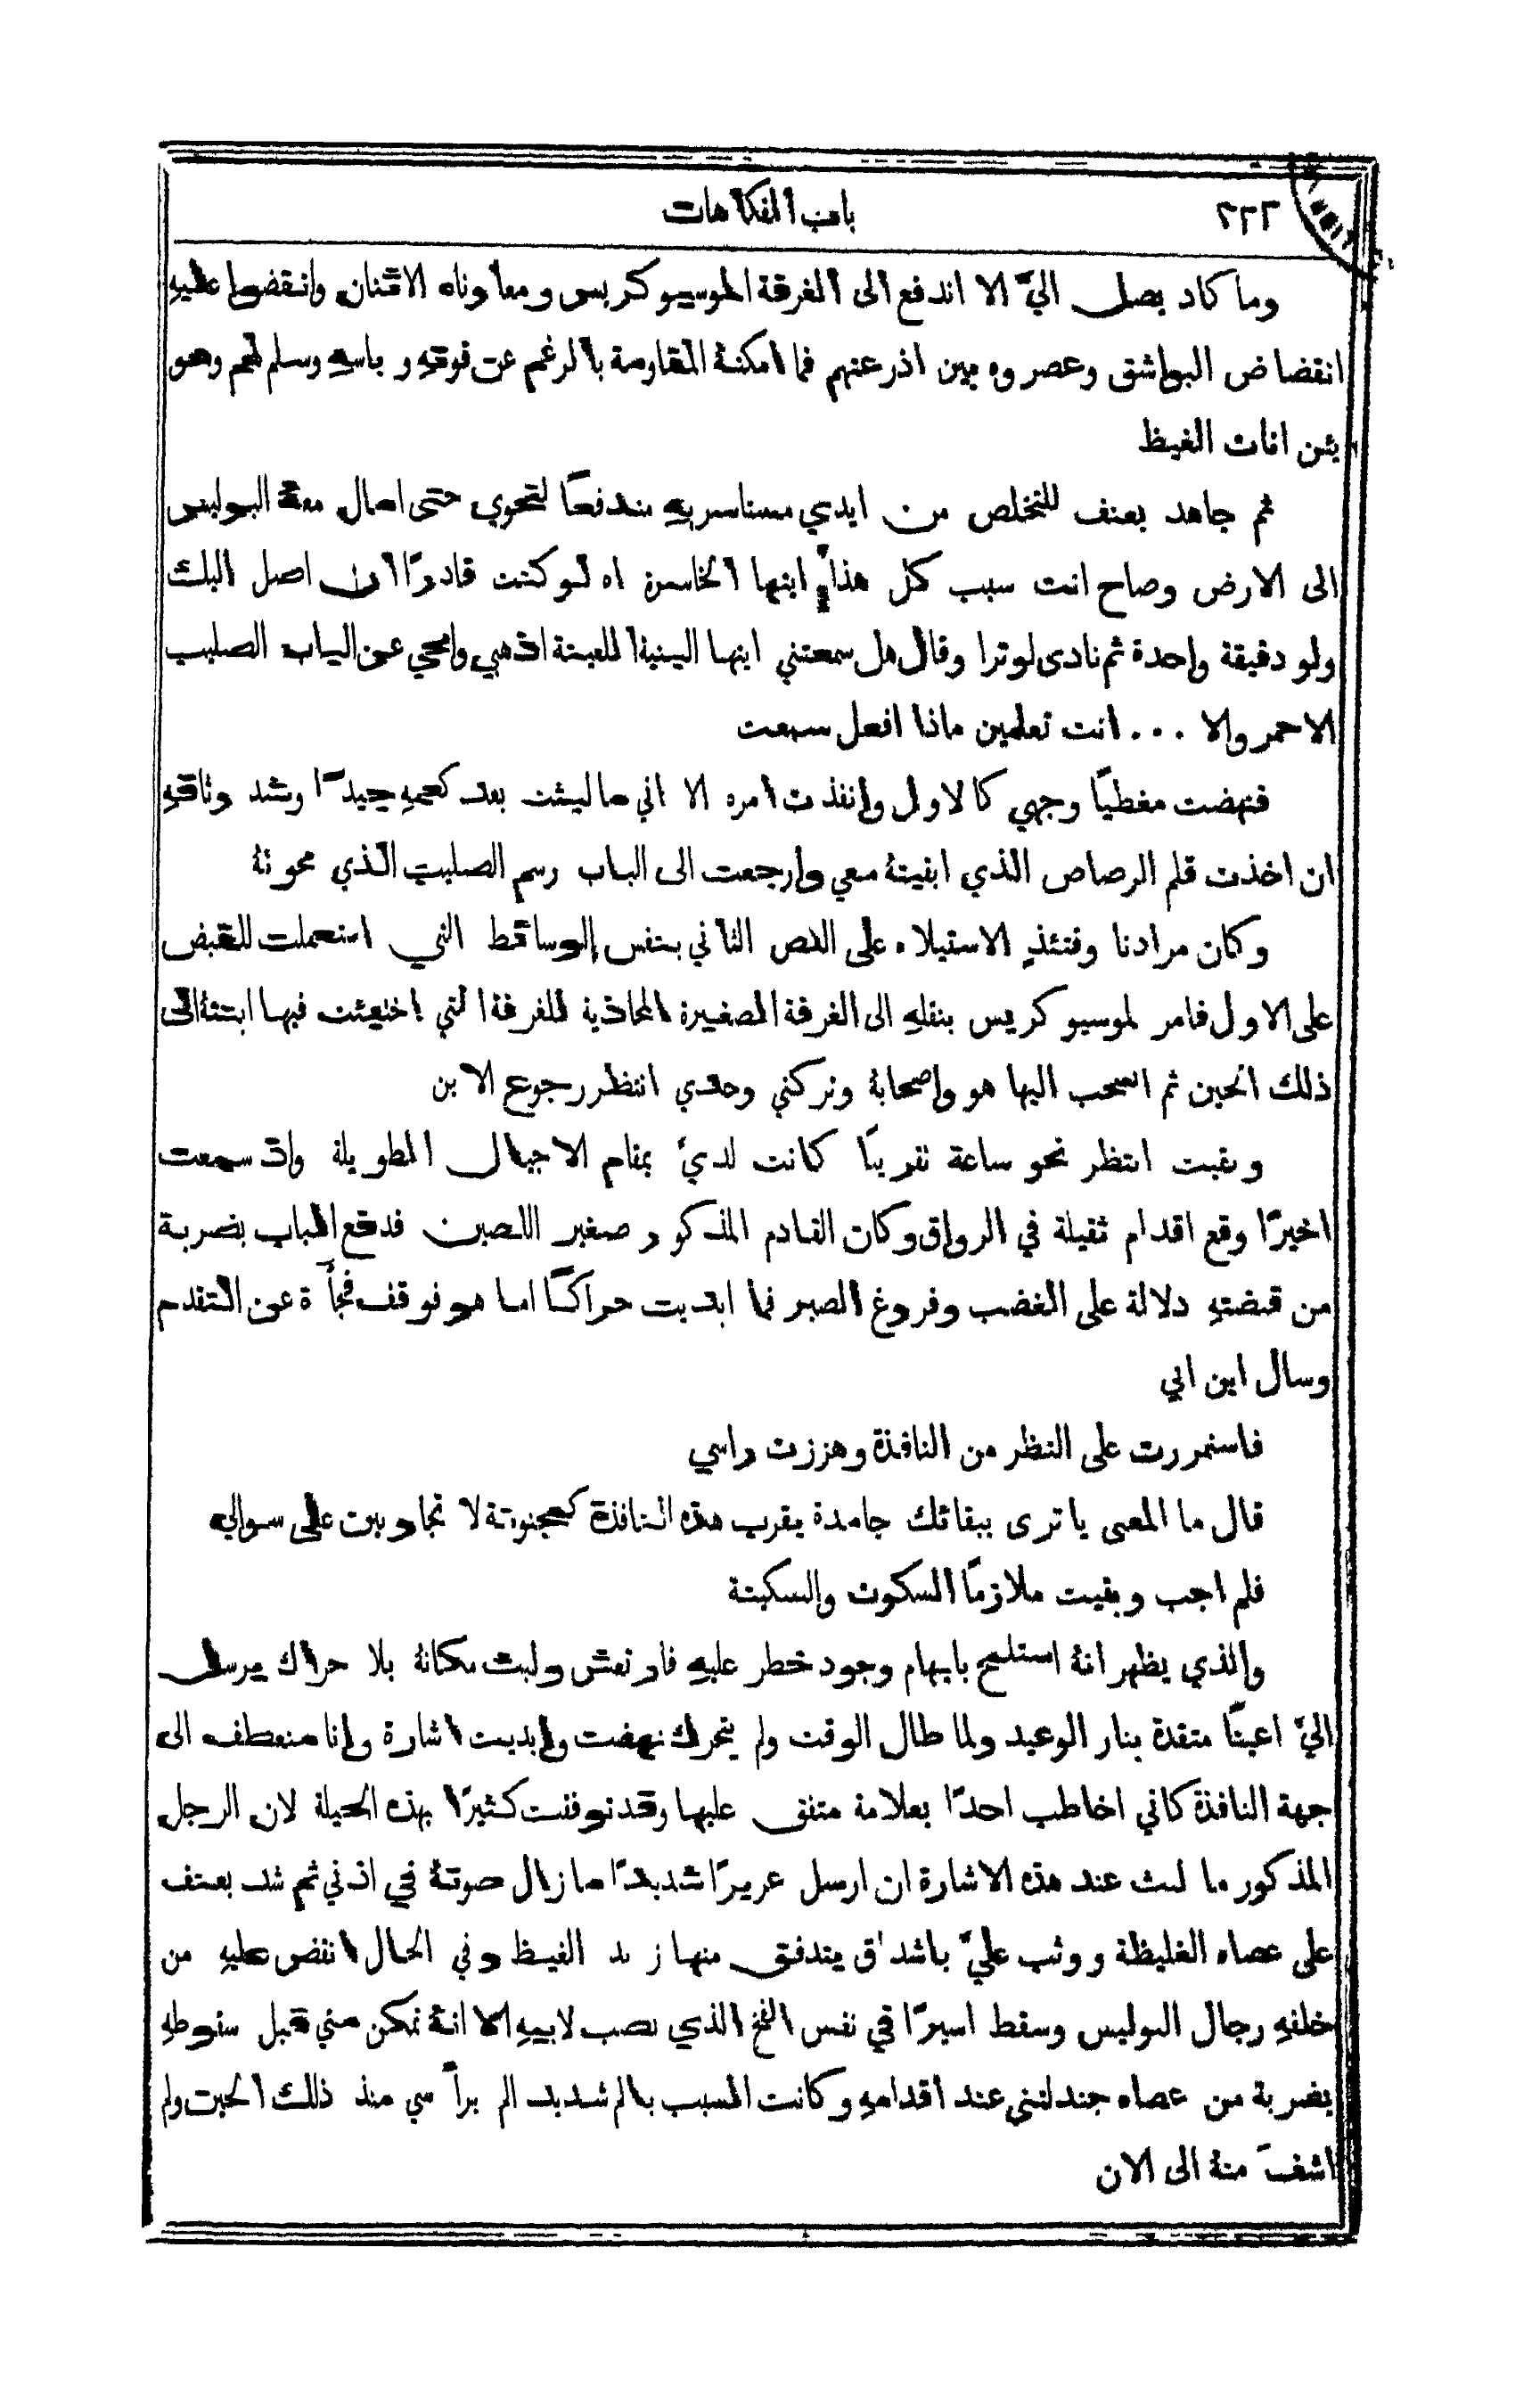 ٢٢٢ باب الفكاهات
وما كاد يصل اليّ الا اندفع الى الغرفة الموسيو كريس ومعاوناه الاثنان وانقضوا عليهِ
انقضاض البواشق وعصروه بين اذرعهم فما امكنهُ المقاومة بالرغم عن قوتهِ وباسهِ وسلم لهم وهو
يئن انات الغيظ
ثم جاهد بعنف للتخلص من ايدي مستاسريهِ مندفعًا لنحوي حتى امال معهُ البوليس
الى الارض وصاح انت سبب كل هذا ايتها الخاسرة اه لو كنت قادرًا ان اصل اليك
ولو دقيقة واحدة ثم نادى لوترا وقال هل سمعتني ايتها اللعينة اذهبي وامحي عن الباب الصليب
الاحمر والا ... انت تعلمين ماذا افعل سمعت
فنهضت مغطيًا وجهي كالاول وانفذت امره الا اني ما لبثت بعد كعمهِ جيدًا وشد وثاقهِ
ان اخذت قلم الرصاص الذي ابقيتهُ معي وارجعت الى الباب رسم الصليب الذي محوتهُ
وكان مرادنا وقتئذٍ الاستيلاء على اللص الثاني بنفس الوسائط التي استعملت للقبض
على الاول فامر لموسيو كريس بنقلهِ الى الغرفة الصغيرة المحاذية للغرفة التي اختبئت فيها ابنتهُ الى
ذلك الحين ثم انسحب اليها هو واصحابهُ وتركني وحدي انتظر رجوع الابن
وبقيت انتظر نحو ساعة تقريبًا كانت لديّ بمقام الاجيال الطويلة واذ سمعت
اخيرًا وقع اقدام ثقيلة في الرواق وكان القادم المذكور صغير اللصين فدفع الباب بضربة
من قبضتهِ دلالة على الغضب وفروغ الصبر فما ابديت حراكًا اما هو فوقف فجأة عن التقدم
وسال اين ابي
فاستمررت على النظر من النافذة وهززت راسي
قال ما المعنى يا ترى ببقائك جامدة بقرب هذه النافذة كمجنونة لا تجاوبين على سوالي
فلم اجب وبقيت ملازمًا السكوت والسكينة
والذي يظهر انهُ استلمح بابهام وجود خطر عليهِ فارتعش ولبث مكانهُ بلا حراك يرسل
اليّ اعينًا متقدة بنار الوعيد ولما طال الوقت ولم يتحرك نهضت وابديت اشارة وانا منعطف الى
جهة النافذة كاني اخاطب احدًا بعلامة متفق عليها وقد توفقت كثيرًا بهذه الحيلة لان الرجل
المذكور ما لبث عند هذه الاشارة ان ارسل عريرًا شديدًا ما زال صوتهُ في اذني ثم شد بعنف
على عصاه الغليظة ووثب عليّ باشداق يتدفق منها زبد الغيظ وفي الحال انقض عليهِ من
خلفهِ رجال البوليس وسقط اسيرًا في نفس الفخ الذي نصب لابيهِ الا انهُ تمكن مني قبل سقوطهِ
بضربة من عصاه جندلتني عند اقدامهِ وكانت السبب بالم شديد الم براسي منذ ذلك الحين ولم
اشفَ منهُ الى الان